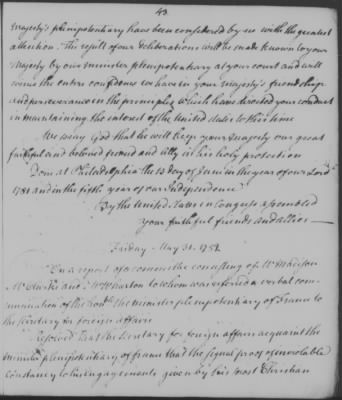 43
Majesty's plenipotentiary have been considered by us with the greatest
attention. The result of our deliberations will be made known to your
Majesty by our minister plenipotentiary at your court and will
evince the entire confidence we have in your Majesty's friendship
and perseverance in the principles which have directed your conduct
in maintaining the interest of the United States to this time
We pray God that he will keep your Majesty our great
faithful and beloved friend and ally in his holy protection
Done at Philadelphia the 13 day of June in the year of our Lord
1781 and in the fifth year of our Independence
By the United States in Congress assembled
your faithful friends and allies
Friday May 31. 1781
On a report of a committee consisting of Mr Madison
Mr and to whom was referred a verbal com-
munication of the honble the minister plenipotentiary of France to
the secretary for foreign affairs
Resolved that the Secretary for foreign affairs acquaint the
minister plenipotentiary of France that the signal proof of inviolable
constancy to his engagements given by his most Christian